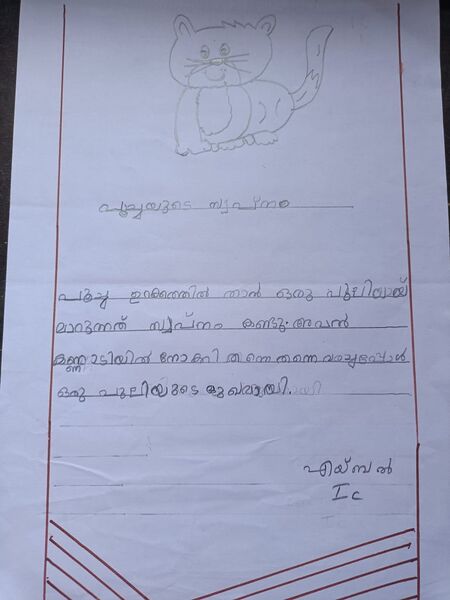 പൂച്ചയുടെ സ്വപ്നം
പൂച്ച ഉറക്കത്തിൽ താൻ ഒരു പുലിയായ്
മാറുന്നത് സ്വപ്നം കണ്ടു. അവൻ
കണ്ണാടിയിൽ നോക്കി തന്നെത്തന്നെ വരച്ചപ്പോൾ
ഒരു പുലിയുടെ മുഖമായി.
എയ്ബൽ
I C